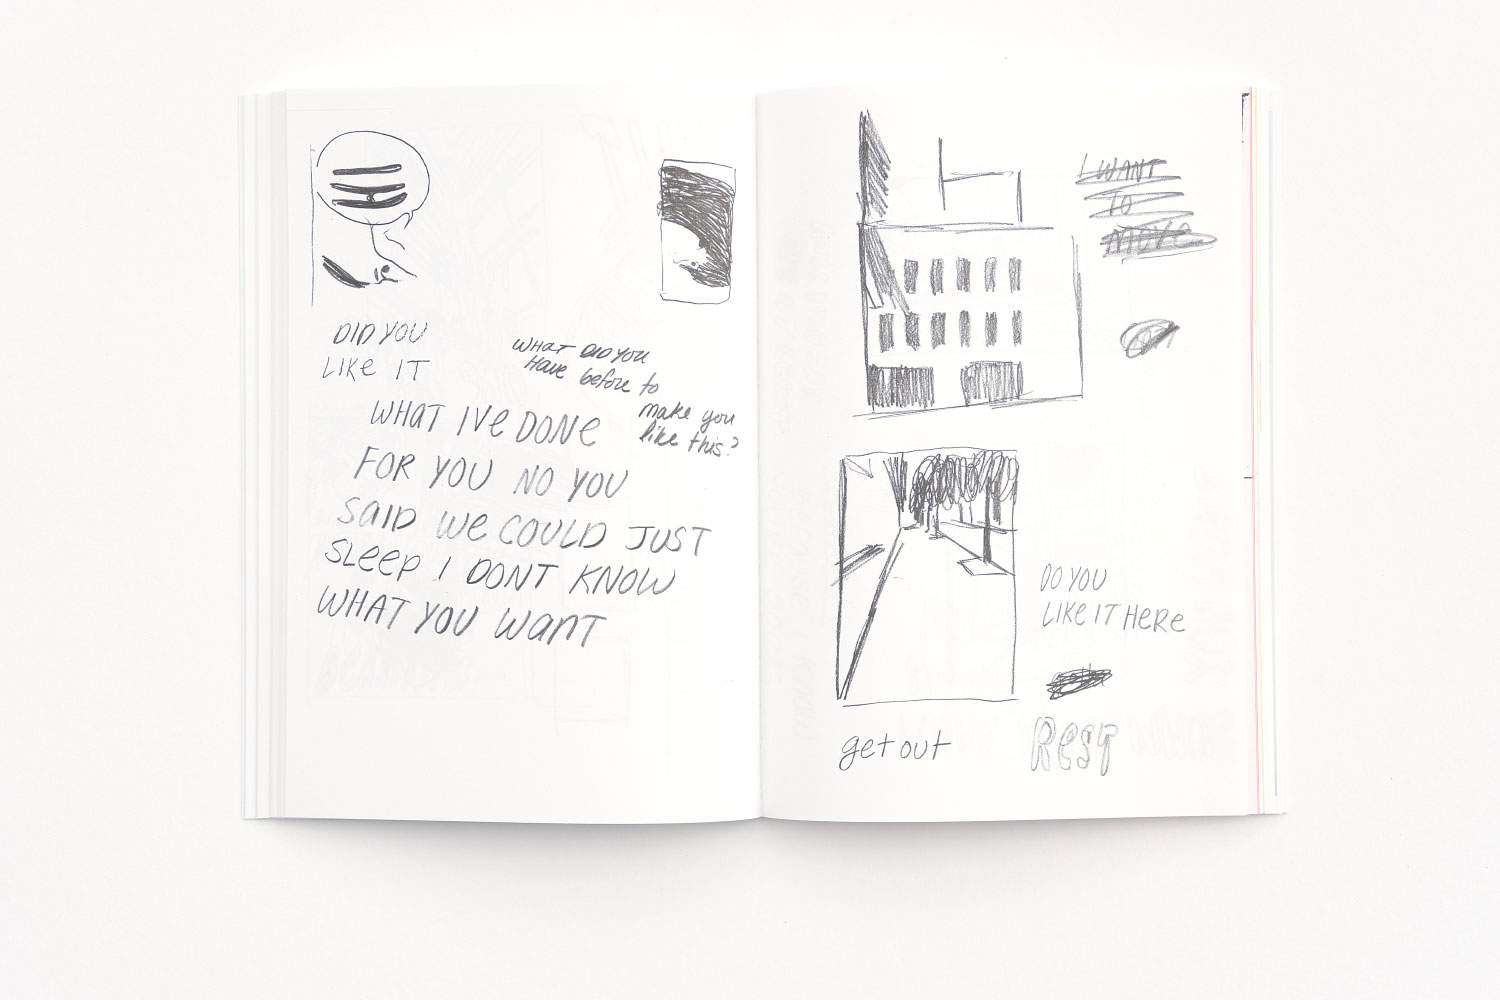 DID YOU
LIKE IT
WHAT DID YOU
Have before to
make you
like this?
WHAT IVE DONE
FOR YOU NO YOU
SAID WE COULD JUST
SLEEP I DONT KNOW
WHAT YOU WANT
I WANT
TO
MOVE
DO YOU
LIKE IT HERE
get out
REST